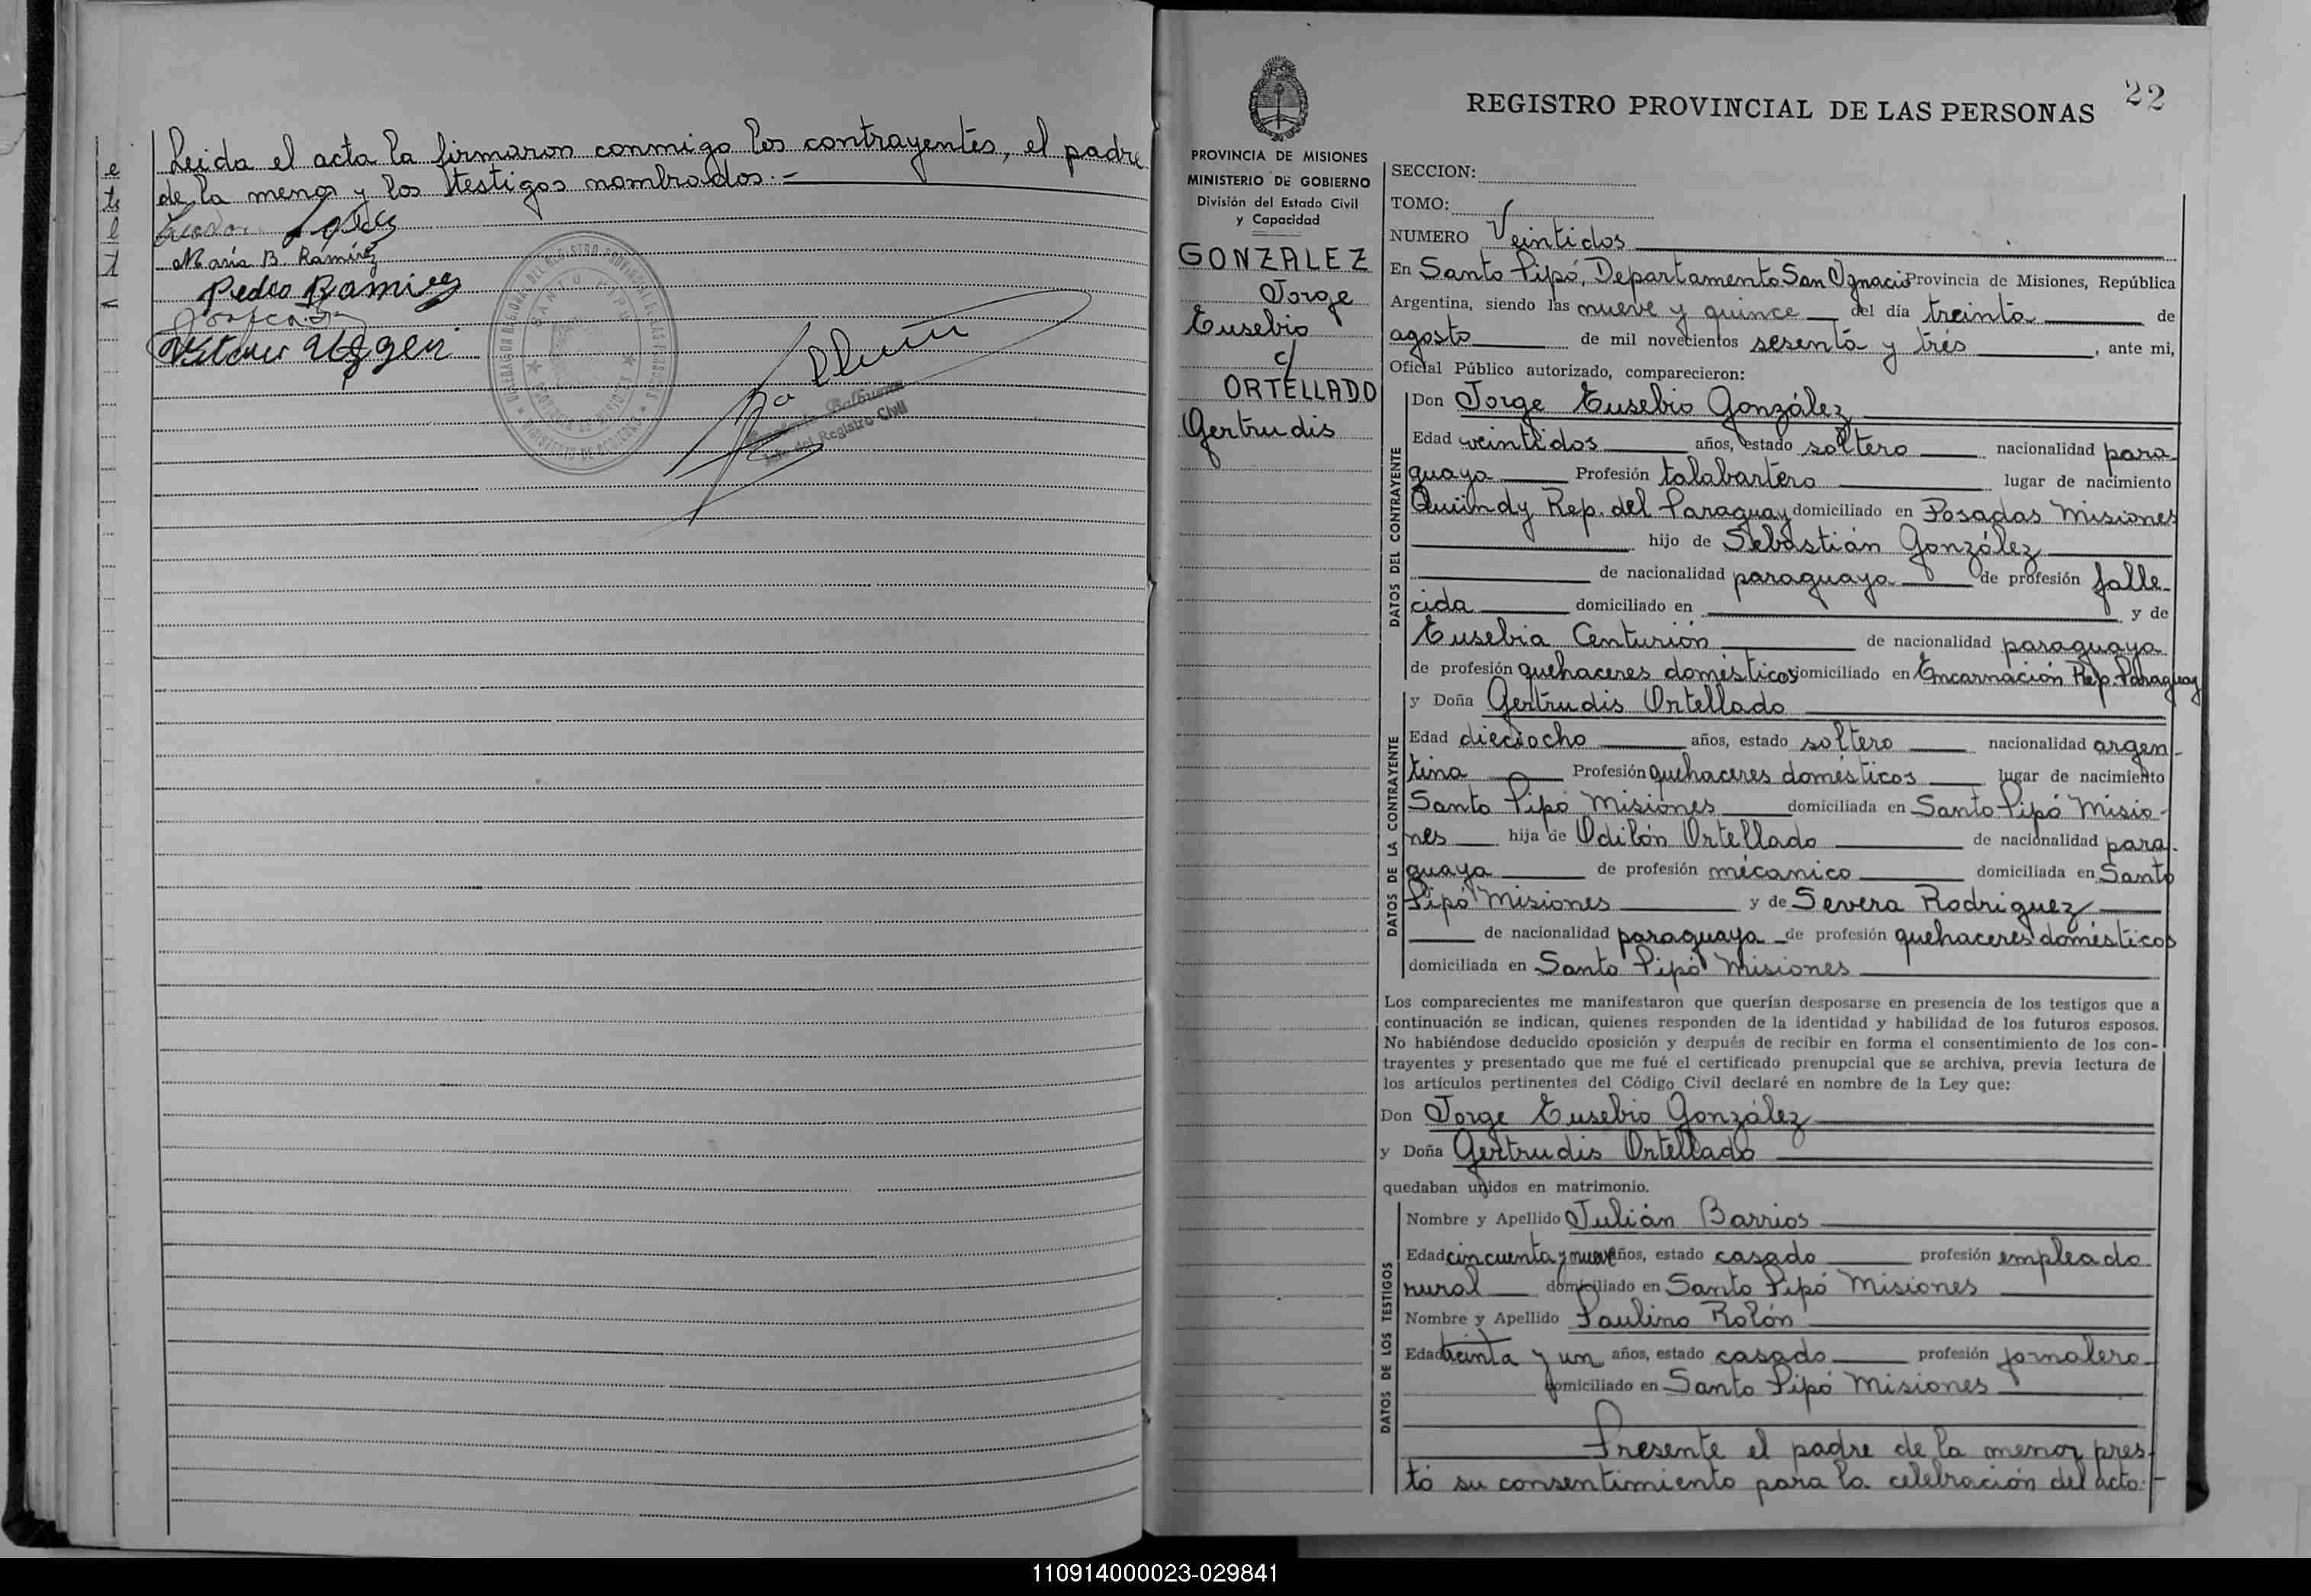 Leida el acta la firmaron conmigo los contrayentes, el padre
de la menor y los testigos nombrados.-
María B. Ramírez
Pedro Ramirez
22
REGISTRO PROVINCIAL DE LAS PERSONAS
PROVINCIA DE MISIONES
MINISTERIO DE GOBIERNO
División del Estado Civil
y Capacidad
GONZALEZ
Jorge
Eusebio
c/
ORTELLADO
Gertrudis
SECCION:
TOMO:
NUMERO Veintidos
En Santo Pipó, Departamento San Ignacio Provincia de Misiones, República
Argentina, siendo las nueve y quince del día treinta de
agosto de mil novecientos sesenta y tres, ante mi,
Oficial Público autorizado, comparecieron:
DATOS DEL CONTRAYENTE
Don Jorge Eusebio González
Edad veintidos años, estado soltero nacionalidad para-
guaya Profesión talabartero lugar de nacimiento
Quiindy Rep. del Paraguay domiciliado en Posadas Misiones
hijo de Sebastián González
de nacionalidad paraguaya de profesión falle-
cida domiciliado en y de
Eusebia Centurión de nacionalidad paraguaya
de profesión quehaceres domésticos domiciliado en Encarnación Rep. Paraguay
DATOS DE LA CONTRAYENTE
y Doña Gertrudis Ortellado
Edad dieciocho años, estado soltero nacionalidad argen-
tina Profesión quehaceres domésticos lugar de nacimiento
Santo Pipó Misiones domiciliada en Santo Pipó Misio-
nes hija de Odilón Ortellado de nacionalidad para-
guaya de profesión mécanico domiciliada en Santo
Pipó Misiones y de Severa Rodriguez
de nacionalidad paraguaya de profesión quehaceres domésticos
domiciliada en Santo Pipó Misiones
Los comparecientes me manifestaron que querían desposarse en presencia de los testigos que a
continuación se indican, quienes responden de la identidad y habilidad de los futuros esposos.
No habiéndose deducido oposición y después de recibir en forma el consentimiento de los con-
trayentes y presentado que me fué el certificado prenupcial que se archiva, previa lectura de
los artículos pertinentes del Código Civil declaré en nombre de la Ley que:
Don Jorge Eusebio González
y Doña Gertrudis Ortellado
quedaban unidos en matrimonio.
DATOS DE LOS TESTIGOS
Nombre y Apellido Julián Barrios
Edad cincuenta y nueve años, estado casado profesión empleado
rural domiciliado en Santo Pipó Misiones
Nombre y Apellido Paulino Rolón
Edad treinta y un años, estado casado profesión jornalero
domiciliado en Santo Pipó Misiones
Presente el padre de la menor pres-
tó su consentimiento para la celebración del acto.-
110914000023-029841